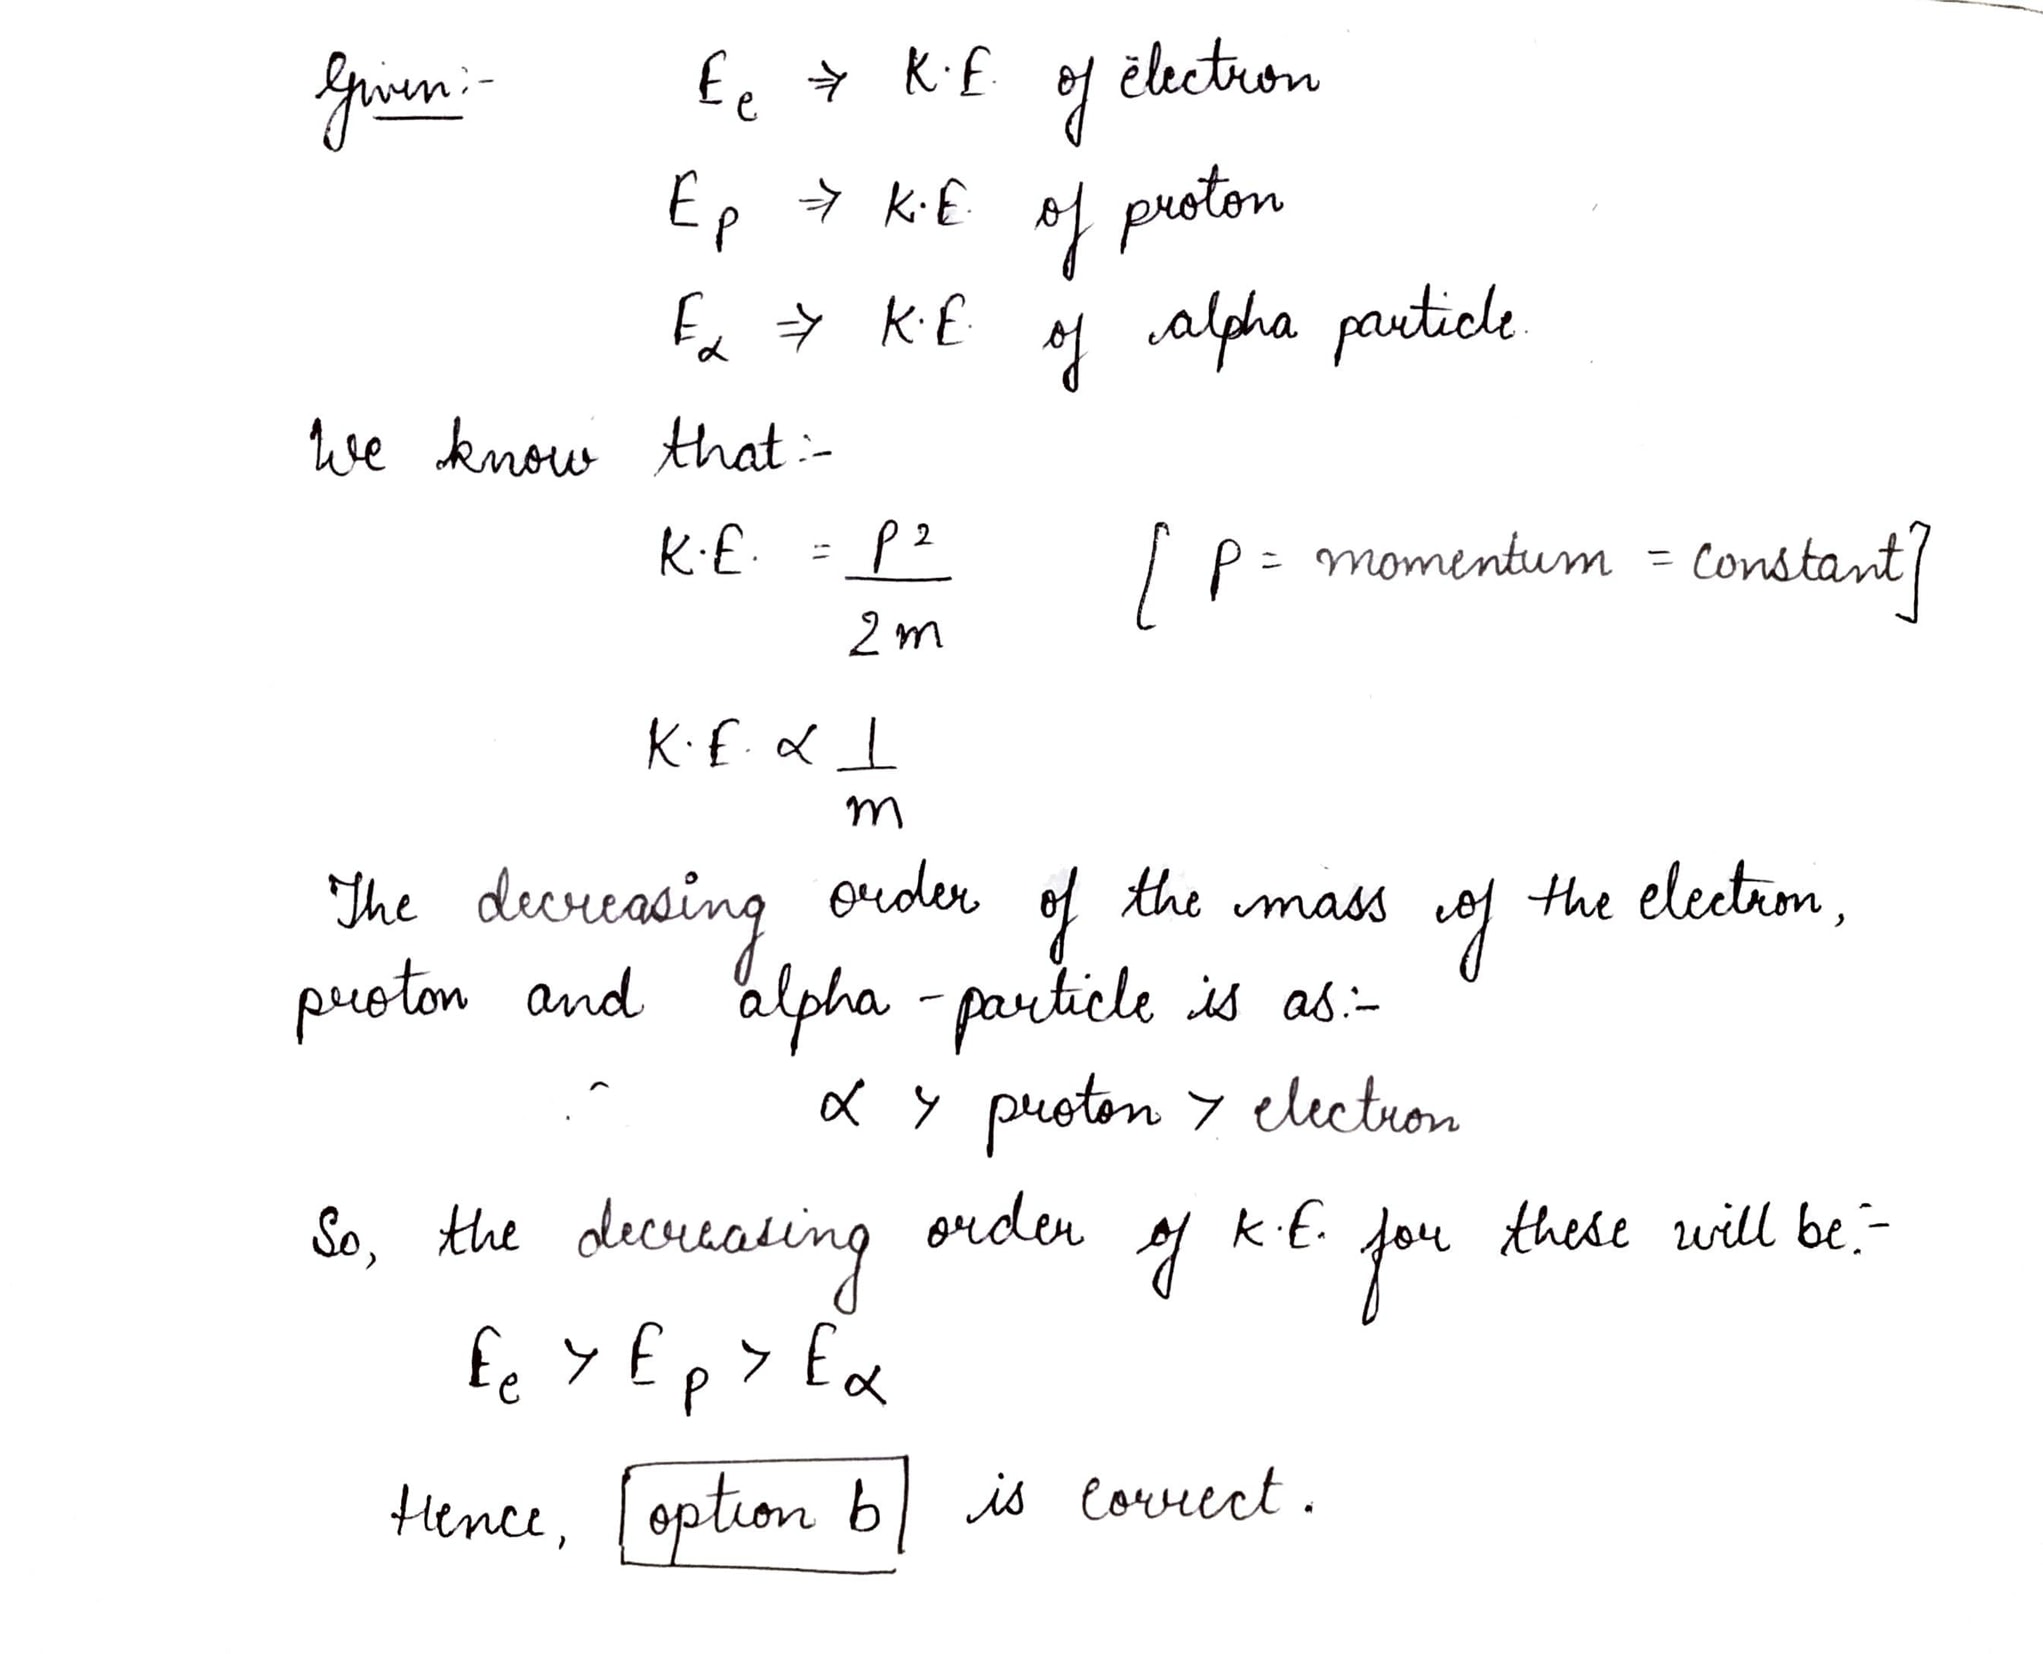 Given:- Ee ⇒ K.E. of electron
Ep ⇒ K.E. of proton
Eα ⇒ K.E. of alpha particle.
We know that:-
K.E. = P²/2m [P = momentum = constant]
K.E. ∝ 1/m
The decreasing order of the mass of the electron,
proton and alpha-particle is as:-
α > proton > electron
So, the decreasing order of K.E. for these will be:-
Ee > Ep > Eα
Hence, option b is correct.